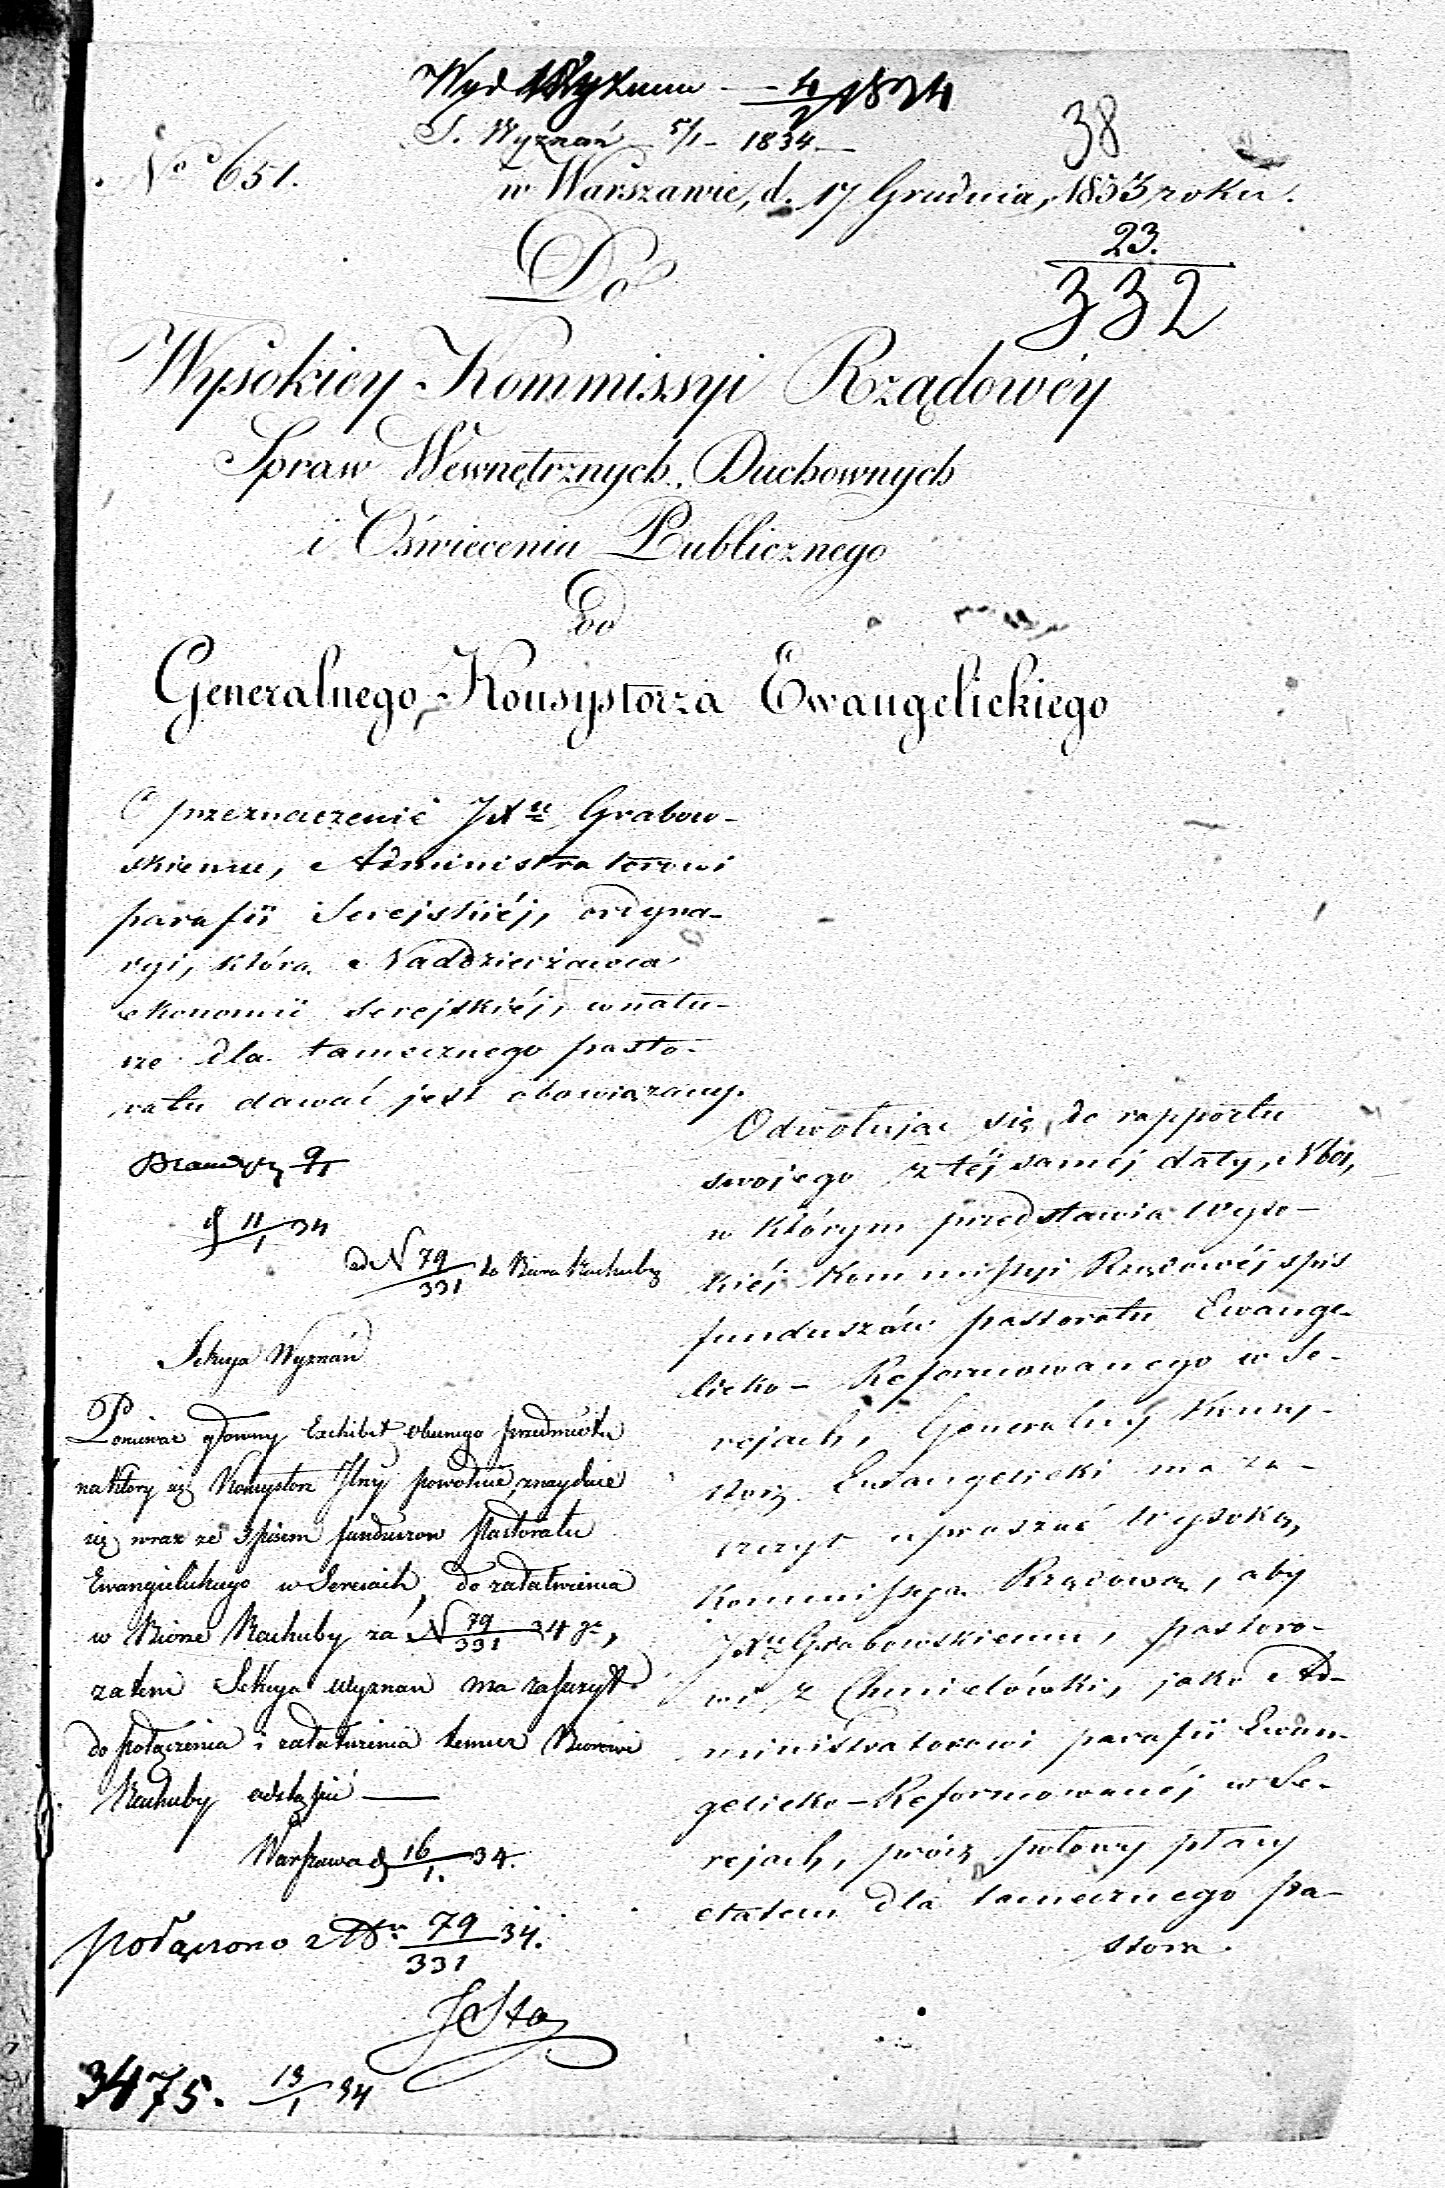 Wyd Wyznan — 4/1 1834
S. Wyznań 5/1 1834
38
No 651.
w Warszawie, d. 17 Grudnia, 1833 roku.
23.
332
Do
Wysokiey Kommissyi Rządowey
Spraw Wewnętrznych, Duchownych
i Oświecenia Publicznego
od
Generalnego Konsystorza Ewangelickiego
O przeznaczenie JXu Grabow-
skiemu, Administratorowi
parafii Serejskiéj, ordyna-
ryi, którą Naddzierżawca
ekonomii Serejskiéj, w natu-
rze dla tamecznego pasto-
ratu dawać jest obowiązany.
9/1
11/1 34
ad N 79/331 do Biura Rachuby
Sekcya Wyznań
Ponieważ główny Exhibit obecnego przedmiotu
na który się Konsystorz Jlny powołuie, znayduie
się wraz ze spisem funduszow Pastoratu
Ewangielickiego w Sereiach, do załatwienia
w Biorze Rachuby za N 79/331 34 r.,
zatem Sekcya Wyznan ma zaszczyt
do połączenia i załatwienia temuż Biorowi
Rachuby odstąpić —
Warszawa d 16/1. 34.
połączono z Nr. 79/331 34.
3475. 13/1 34
Odwołując się do rapportu
swojego z téj samej daty, N 601,
w którym przedstawia Wyso-
kiéj Kommissyi Rządowéj spis
funduszów pastoratu Ewange-
licko-Reformowanego w Se-
rejach, Generalny Konsy-
storz Ewangelicki ma za-
szczyt upraszać Wysoką
Kommissyą Rządową, aby
JXu Grabowskiemu, pastoro-
wi z Chmielówki, jako Ad-
ministratorowi parafii Ewan-
gelicko-Reformowanéj w Se-
rejach, prócz połowy płacy
etatem dla tamecznego pa-
stora.